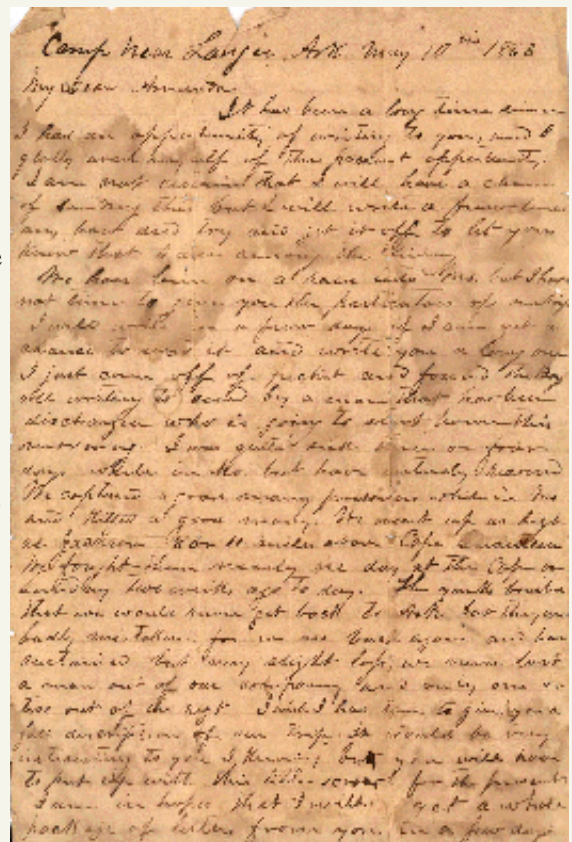 Camp Near Langie Ark May 10th 1863
My Dear Amanda
It has been a long time since
I had an opportunity of writing to you, and I
gladly avail myself of the present opportunity.
I am not certain that I will have a chance
of sending this but I will write a few lines
any how and try and get it off to let you
know that I am among the living
We have been on a raid into Mo. but I have
not time to give you the particulars of our trip
I will write in a few days if I can get a
chance to send it and write you a long one
I just came off of picket and found the Boys
all writing to send by a man that has been
discharged who is going to start home this
evening. I was quite sick three or four
days while in Mo. but have entirely recovered
We captured a good many prisoners while in Mo
and killed a good many. We went up as high
as Jackson 10 or 11 miles above Cape Girardeau
We fought them nearly all day at the Cape on
Sunday two weeks ago to day. The yanks
that we would never get back to Ark but they are
badly mistaken for we are back again and have
sustained but very slight loss, we never lost
a man out of our company and only one or
two out of the regt I wish I had time to give you a
full description of our trip. it would be very
interesting to you I know, but you will have
to put up with this little for the present
I am in hopes that I will get a whole
package of letters from you in a few days